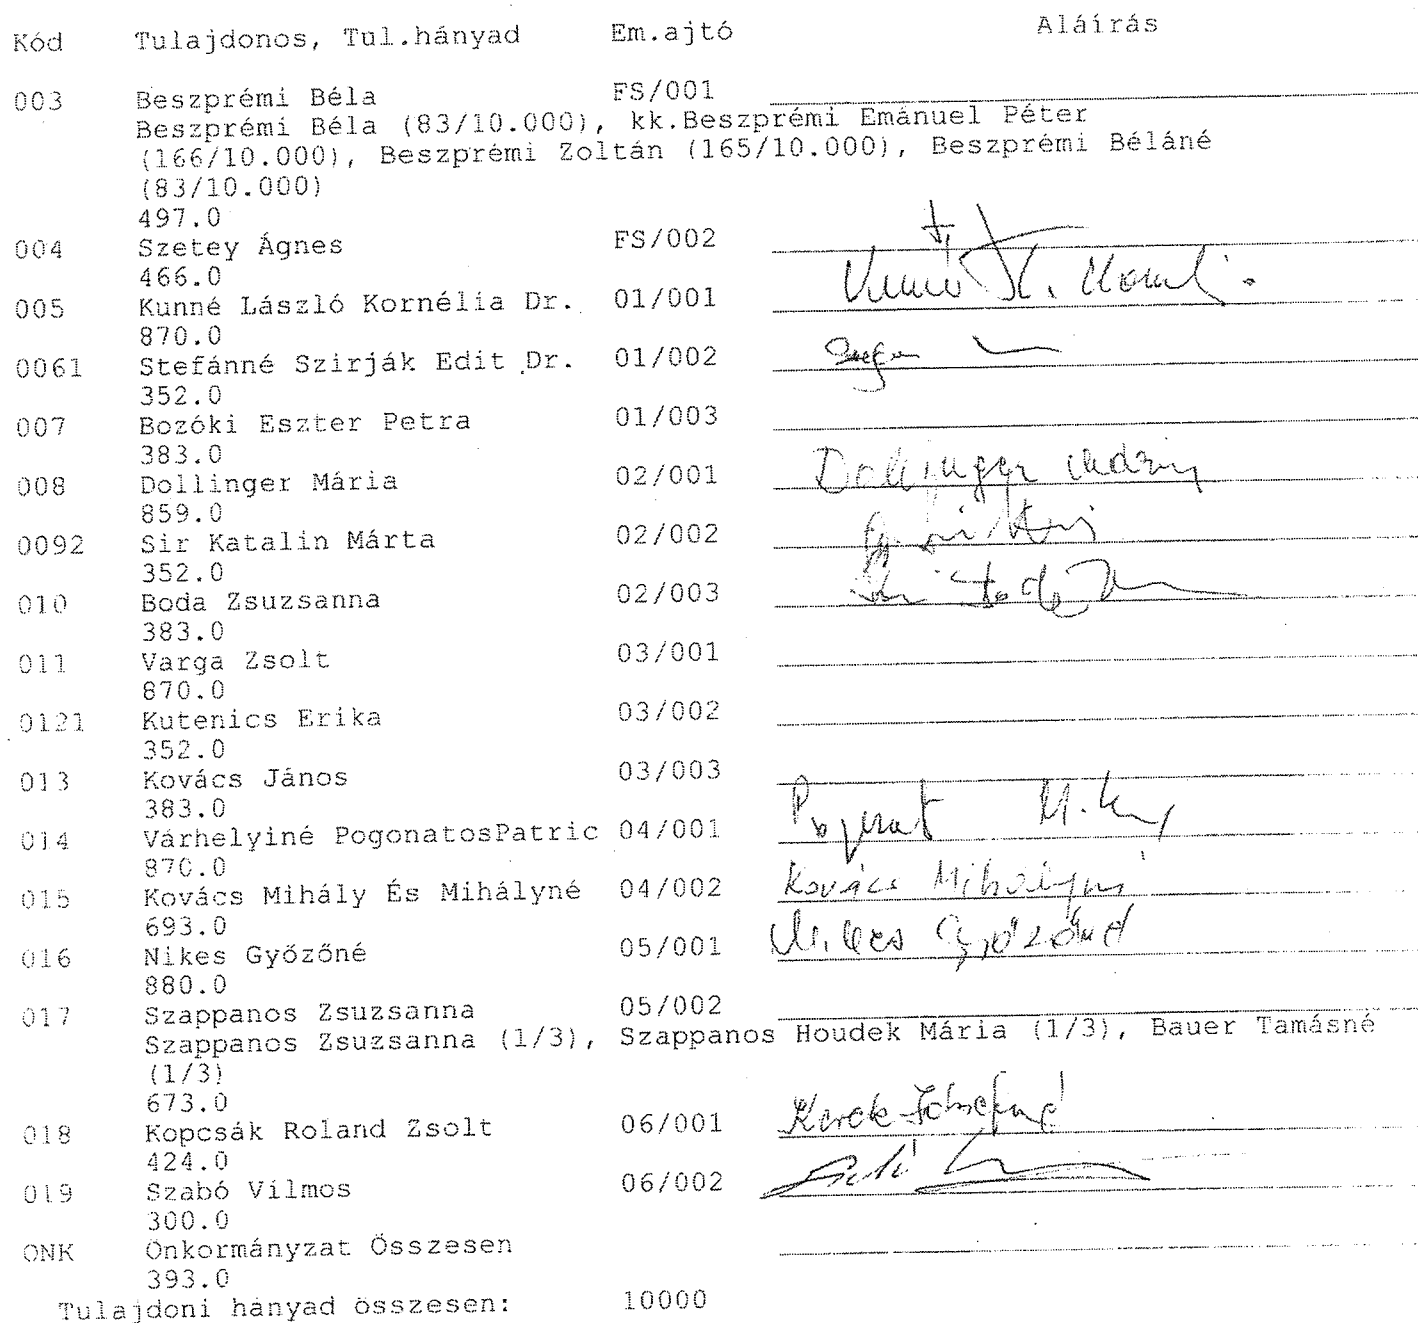 Kód Tulajdonos, Tul.hányad Em.ajtó Aláírás
003 Beszprémi Béla FS/001
Beszprémi Béla (83/10.000), kk.Beszprémi Emánuel Péter
(166/10.000), Beszprémi Zoltán (165/10.000), Beszprémi Béláné
(83/10.000)
497.0
004 Szetey Ágnes FS/002
466.0
005 Kunné László Kornélia Dr. 01/001
870.0
0061 Stefánné Szirják Edit Dr. 01/002
352.0
007 Bozóki Eszter Petra 01/003
383.0
008 Dollinger Mária 02/001 Dollinger Mária
859.0
0092 Sir Katalin Márta 02/002
352.0
010 Boda Zsuzsanna 02/003
383.0
011 Varga Zsolt 03/001
870.0
0121 Kutenics Erika 03/002
352.0
013 Kovács János 03/003
383.0
014 Várhelyiné PogonatosPatric 04/001
870.0
015 Kovács Mihály És Mihályné 04/002 Kovács Mihályné
693.0
016 Nikes Győzőné 05/001 Nikes Győzőné
880.0
017 Szappanos Zsuzsanna 05/002
Szappanos Zsuzsanna (1/3), Szappanos Houdek Mária (1/3), Bauer Tamásné
(1/3)
673.0
018 Kopcsák Roland Zsolt 06/001 Kerek Józsefné
424.0
019 Szabó Vilmos 06/002
300.0
ONK Önkormányzat Összesen
393.0
Tulajdoni hányad összesen: 10000